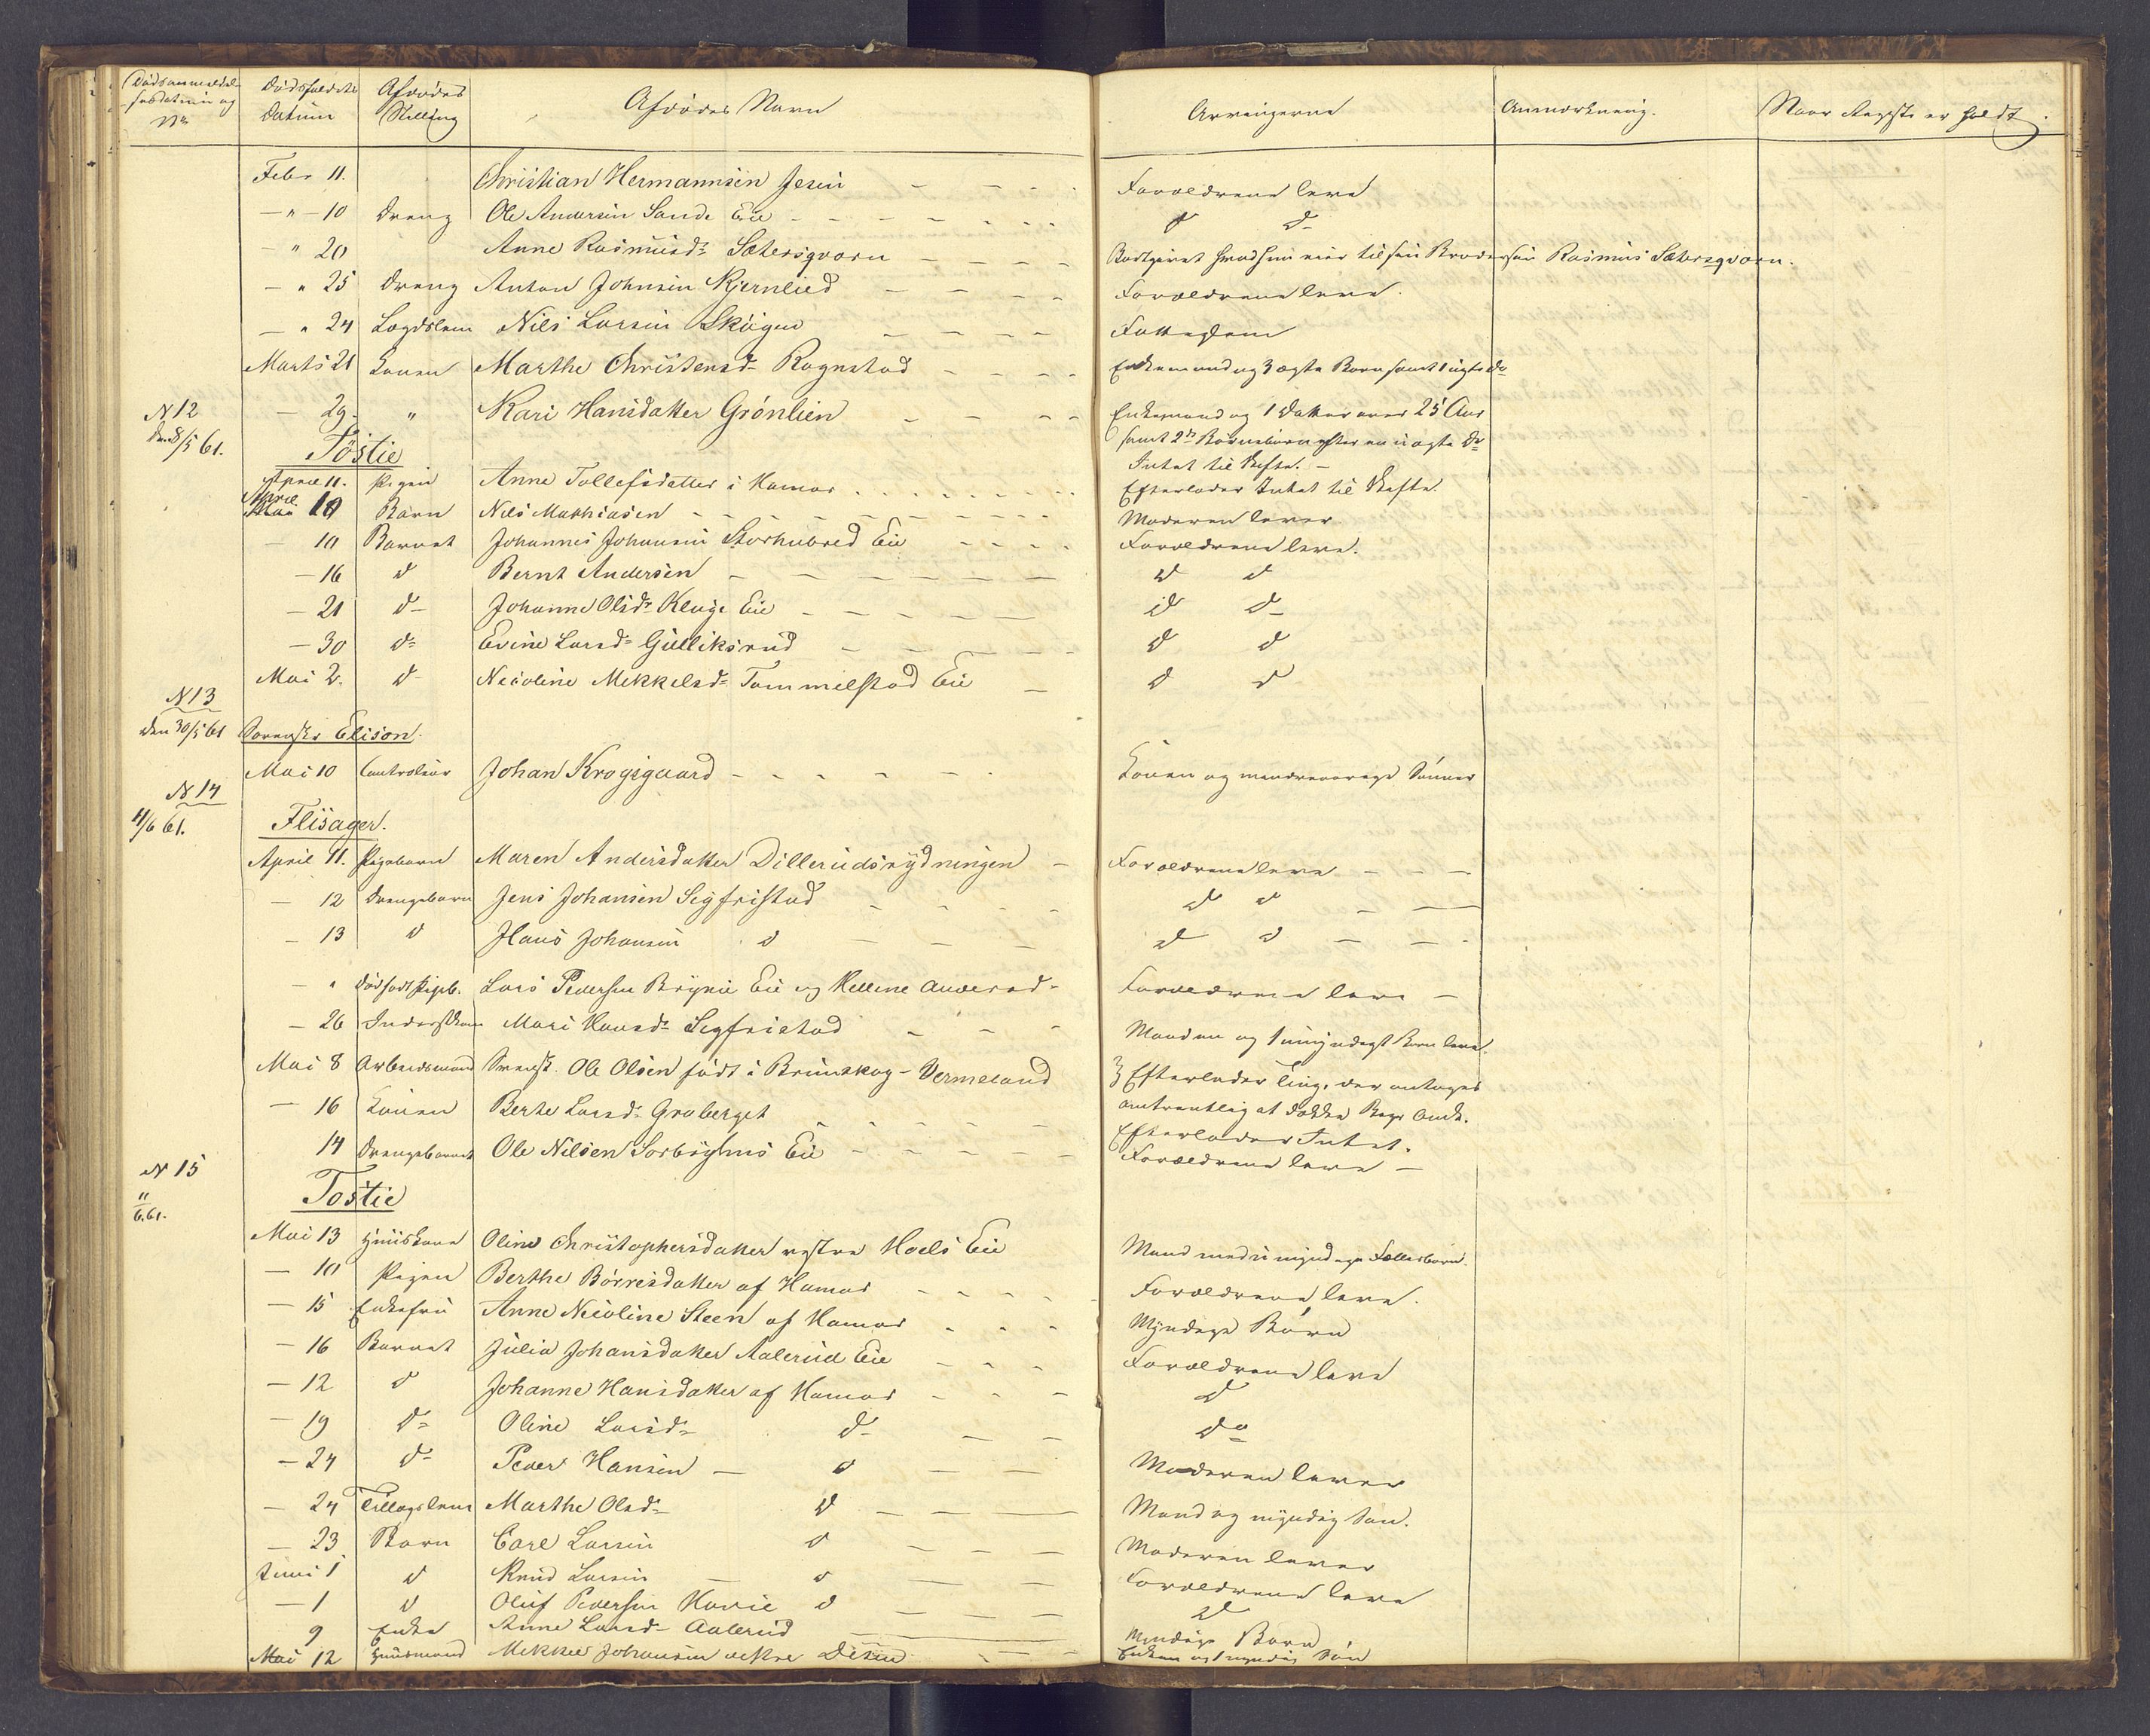 Dødsanmeldel-
sesdatum og
No
Dødsfaldets
Datum
Afdødes
Stilling
Afdødes Navn
Arvingerne
Anmærkning.
Naar Skifte er holdt.
Febr 11. Christian Hermannsen Jesen - - - - Forældrene leve
- " - 10 Dreng Ole Andersen Sande Eie - - - - - - d d
- " 20 Anne Rasmusdr Sætersqvarn - - - - sin Brodersøn Rasmus Sætersqvarn.
- " 25 Dreng Anton Johnsen Kjernlied - - - - Forældrene leve.
- " 24 Lægdslem Nils Larsen Skögen - - - - Fattiglem
Marts 21 Konen Marthe Christensdr Rognstad - - - - Enkemand og 3 ægte Børn samt 1 uægte do
N 12
den 8/5 61.
- 29. " Kari Hansdatter Grönlien - - - - Enkemand og 1 Datter over 25 Aar
samt 2de Børnebørn efter en uægte Dr
Intet til Skifte. -
Töstie
April 11. Pigen Anne Tollefsdatter i Hamar - - - - Efterlader Intet til Skifte.
April 10 Barn Nils Mathiasen - - - - Moderen lever
- 10 Barnet Johannes Johansen Storhubred Eie - - - - Forældrene leve.
- 16 d Bernt Andersen - - - - d d
- 21 d Johanne Olsdr Kluge Eie - - - - d d
- 30 do Evine Larsdr Gulliksrud - - - - d d
Mai 2. d Nicoline Mikkelsdr Tommelstad Eie - d d
N 13
den 30/5 61 Sorenskr Elison.
Mai 10 Controleur Johan Krogsgaard - - - - Konen og mindreaarige Sönner
N 14
4/6 61.
Flisager.
April 11. Pigebarn Maren Andersdatter Dillerudsrydningen - Forældrene leve - - -
- 12 Drengebarn Jens Johansen Sigfristad - - - - d d - -
- 13 d Hans Johansen d - - - d d - - -
- " dødfødt Pigeb. Lars Pedersen Brynie Eie og Helene Andersdr Forældrene leve -
- 26 Inderstkone Mari Hansdr Sigfristad - - - Manden og 1 umyndigt Barn leve.
Mai 8 Arbeidsmand Svensk Ole Olsen født i Brunskog - Vermeland } Efterlader Ting, der antages
- 16 Konen Berte Larsdr Graberget - - - - omtrentlig at dække Begr Omk.
Efterlader Intet.
14 Drengebarnet Ole Nilsen Sorbyhus Eie - - - - Forældrene leve -
N 15
11
6.61.
Tostie
Mai 13 Huuskone Oline Christophersdatter vestre Hoels Eie Mand med umyndige Fællesbørn.
- 10 Pigen Berthe Börresdatter af Hamar - - - - Forældrene leve.
- 15 Enkefru Anne Nicoline Steen af Hamar - - - Myndige Børn
- 16 Barnet Julia Johansdatter Aalerud Eie - - - Forældrene leve
- 12 d Johanne Hansdatter af Hamar - - - d
- 19 do Oline Larsdr d - - do
- 24 do Peder Hansen - d - - Moderen lever
- 24 Tillægslem Marthe Olsdr d - - Mand og myndig Søn.
- 23 Barn Carl Larsen d - - - Moderen lever
Juni 1 d Knud Larsen - d - - Forældrene leve
- 1 d Oluf Pedersen Hovie d - - - d
9 Enke Anne Larsdr Aalerud - Myndige Børn
Mai 12 Huusmand Mikkel Johansen vestre Disen - - - Enken og 1 myndig Søn